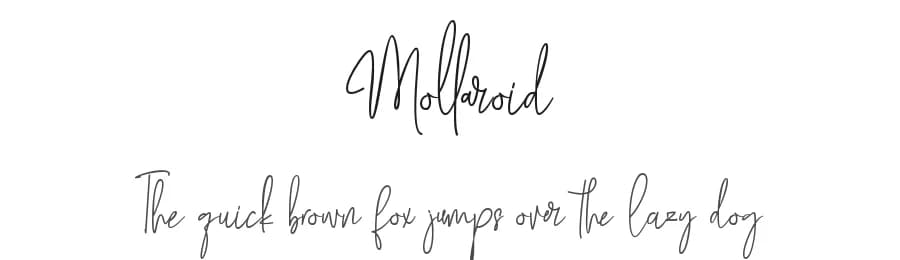 Mollaroid
The quick brown fox jumps over the lazy dog